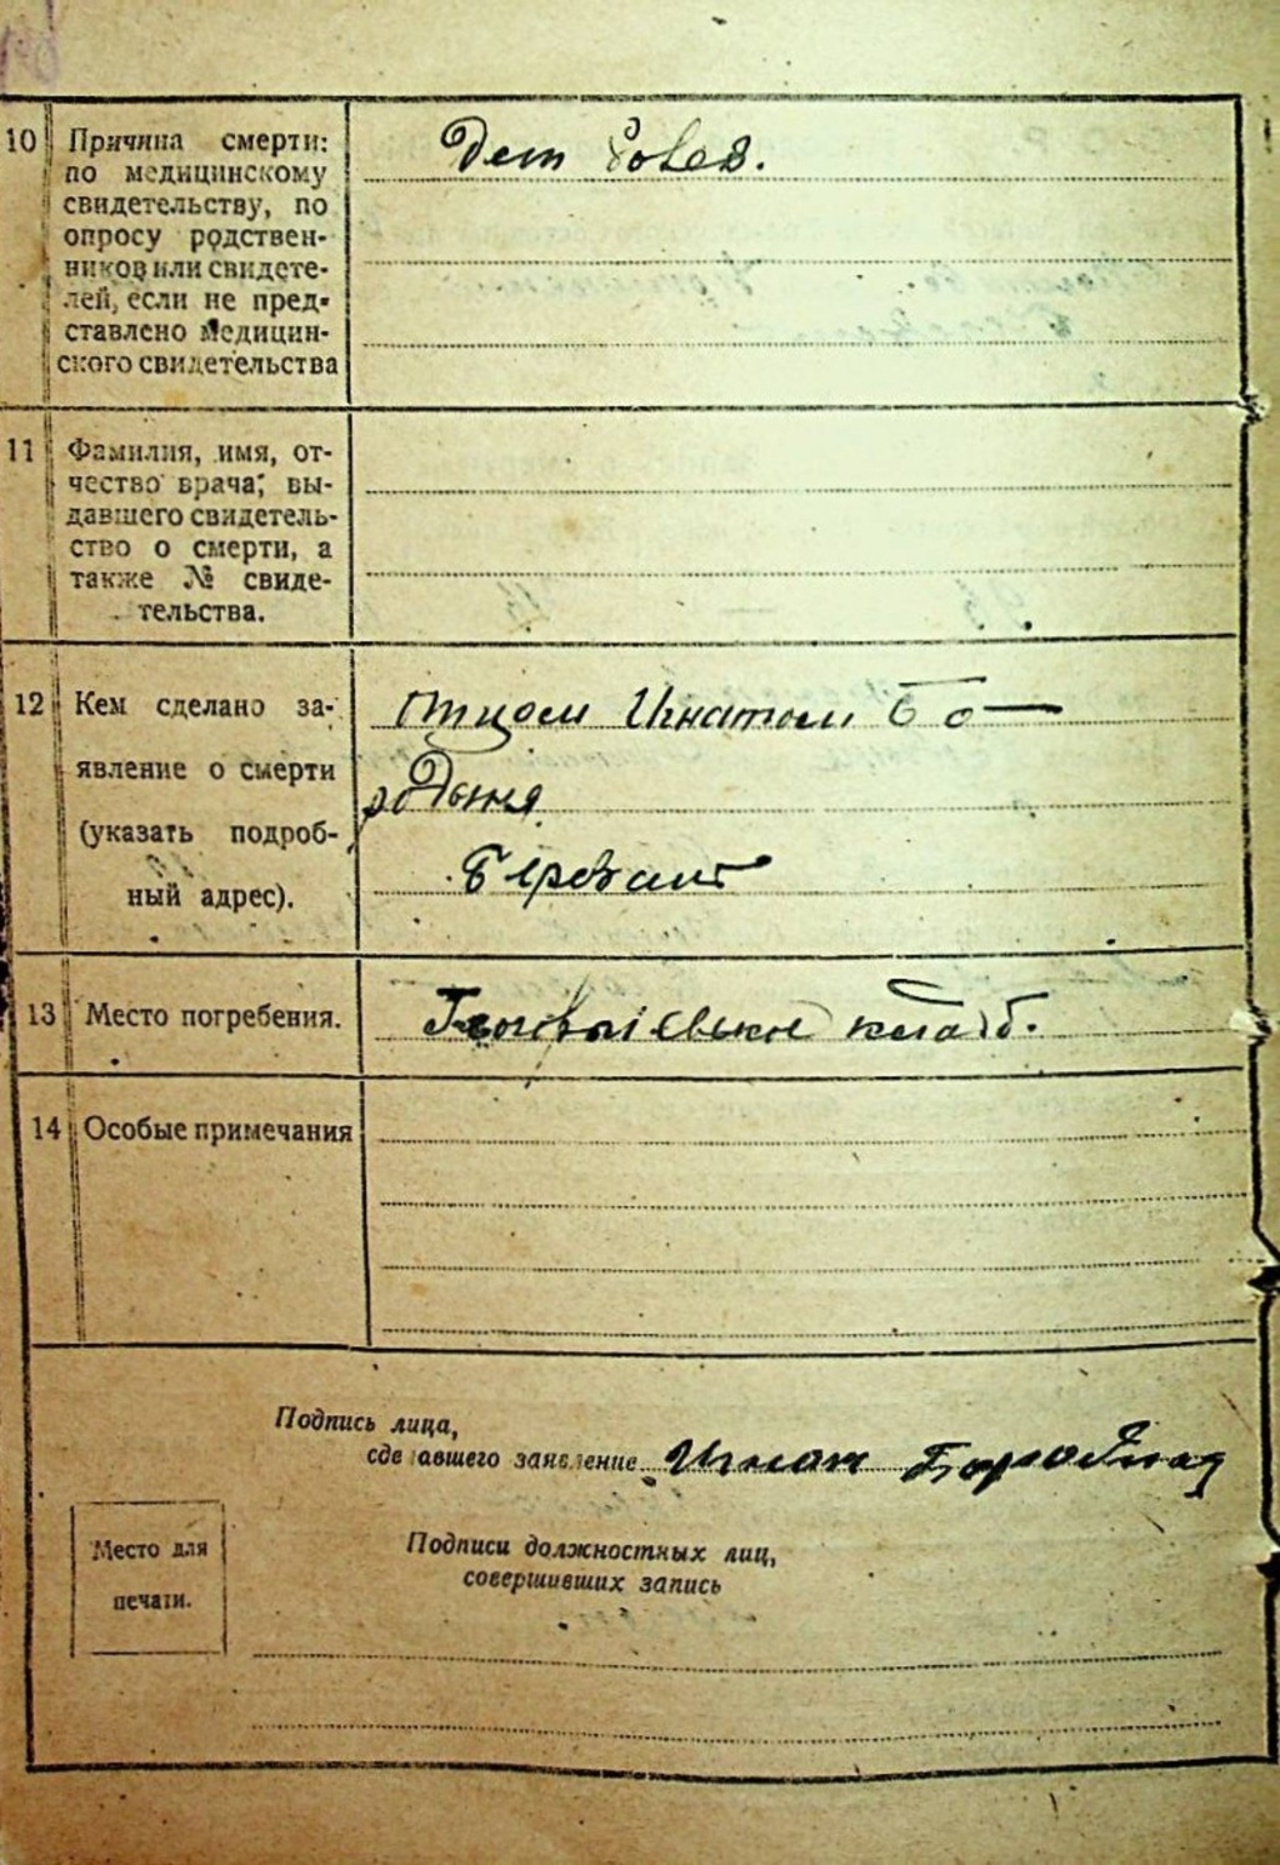 10 Причина смерти:
по медицинскому
свидетельству, по
опросу родствен-
ников или свидете-
лей, если не пред-
ставлено медицин-
ского свидетельства
Дет болез.
11 Фамилия, имя, от-
чество врача, вы-
давшего свидетель-
ство о смерти, а
также № свиде-
тельства.
12 Кем сделано за-
явление о смерти
(указать подроб-
ный адрес).
Отцом Игнатом Бо-
родыня
13 Место погребения.
кладб.
14 Особые примечания
Подпись лица,
сделавшего заявление Игнат Бородыня
Место для
печати.
Подписи должностных лиц,
совершивших запись